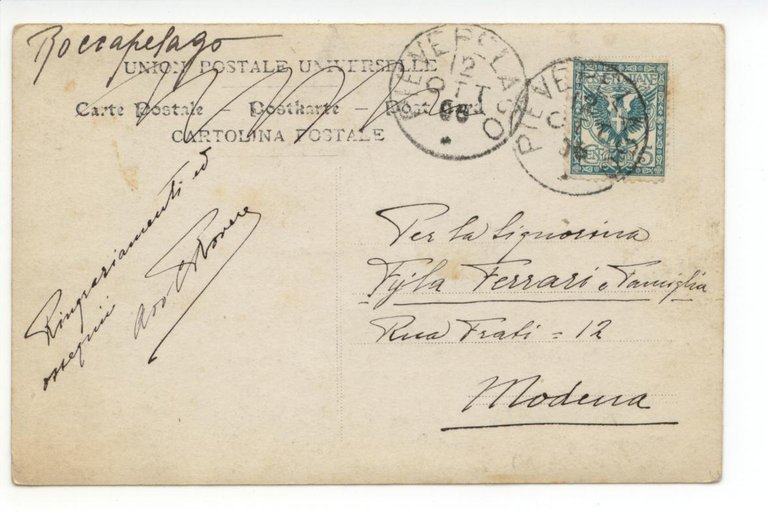 Roccapelago
UNION POSTALE UNIVERSELLE
Carte Postale – Postkarte – Post Card
CARTOLINA POSTALE
PIEVEPELAGO
12
OTT
06
PIEVE
CENTESIMI 5
Ringraziamenti ed
ossequii
Avv
Per la Signorina
Ferrari e Famiglia
Rua Frati = 12
Modena